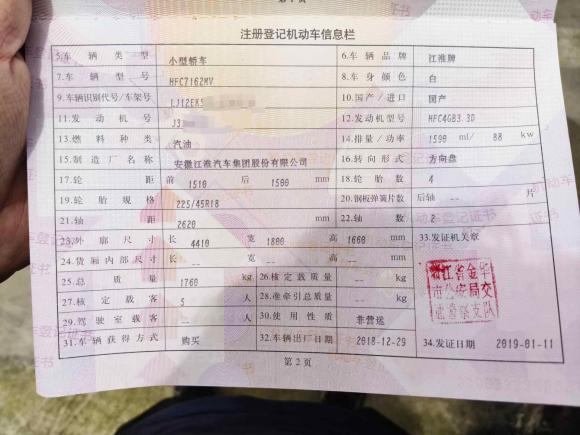 第1页
注册登记机动车信息栏
5.车辆类型 小型轿车 6.车辆品牌 江淮牌
7.车辆型号 HFC7162MV 8.车身颜色 白
9.车辆识别代号/车架号 LJ12EKS 10.国产/进口 国产
11.发动机号 J3 12.发动机型号 HFC4GB3.3D
13.燃料种类 汽油 14.排量/功率 1590 ml/ 88 kw
15.制造厂名称 安徽江淮汽车集团股份有限公司 16.转向形式 方向盘
17.轮距 前 1510 后 1500 mm 18.轮胎数 4
19.轮胎规格 225/45R18 20.钢板弹簧片数 后轴 -- 片
21.轴距 2620 mm 22.轴数 2
23.外廓尺寸 长 4410 宽 1800 高 1660 mm 33.发证机关章
24.货厢内部尺寸 长 -- 宽 -- 高 -- mm
25.总质量 1760 kg 26.核定载质量 -- kg
27.核定载客 5 人 28.准牵引总质量 -- kg
29.驾驶室载客 -- 人 30.使用性质 非营运
31.车辆获得方式 购买 32.车辆出厂日期 2018-12-29 34.发证日期 2019-01-11
江省金华
市公安局交
通警察支队
第2页